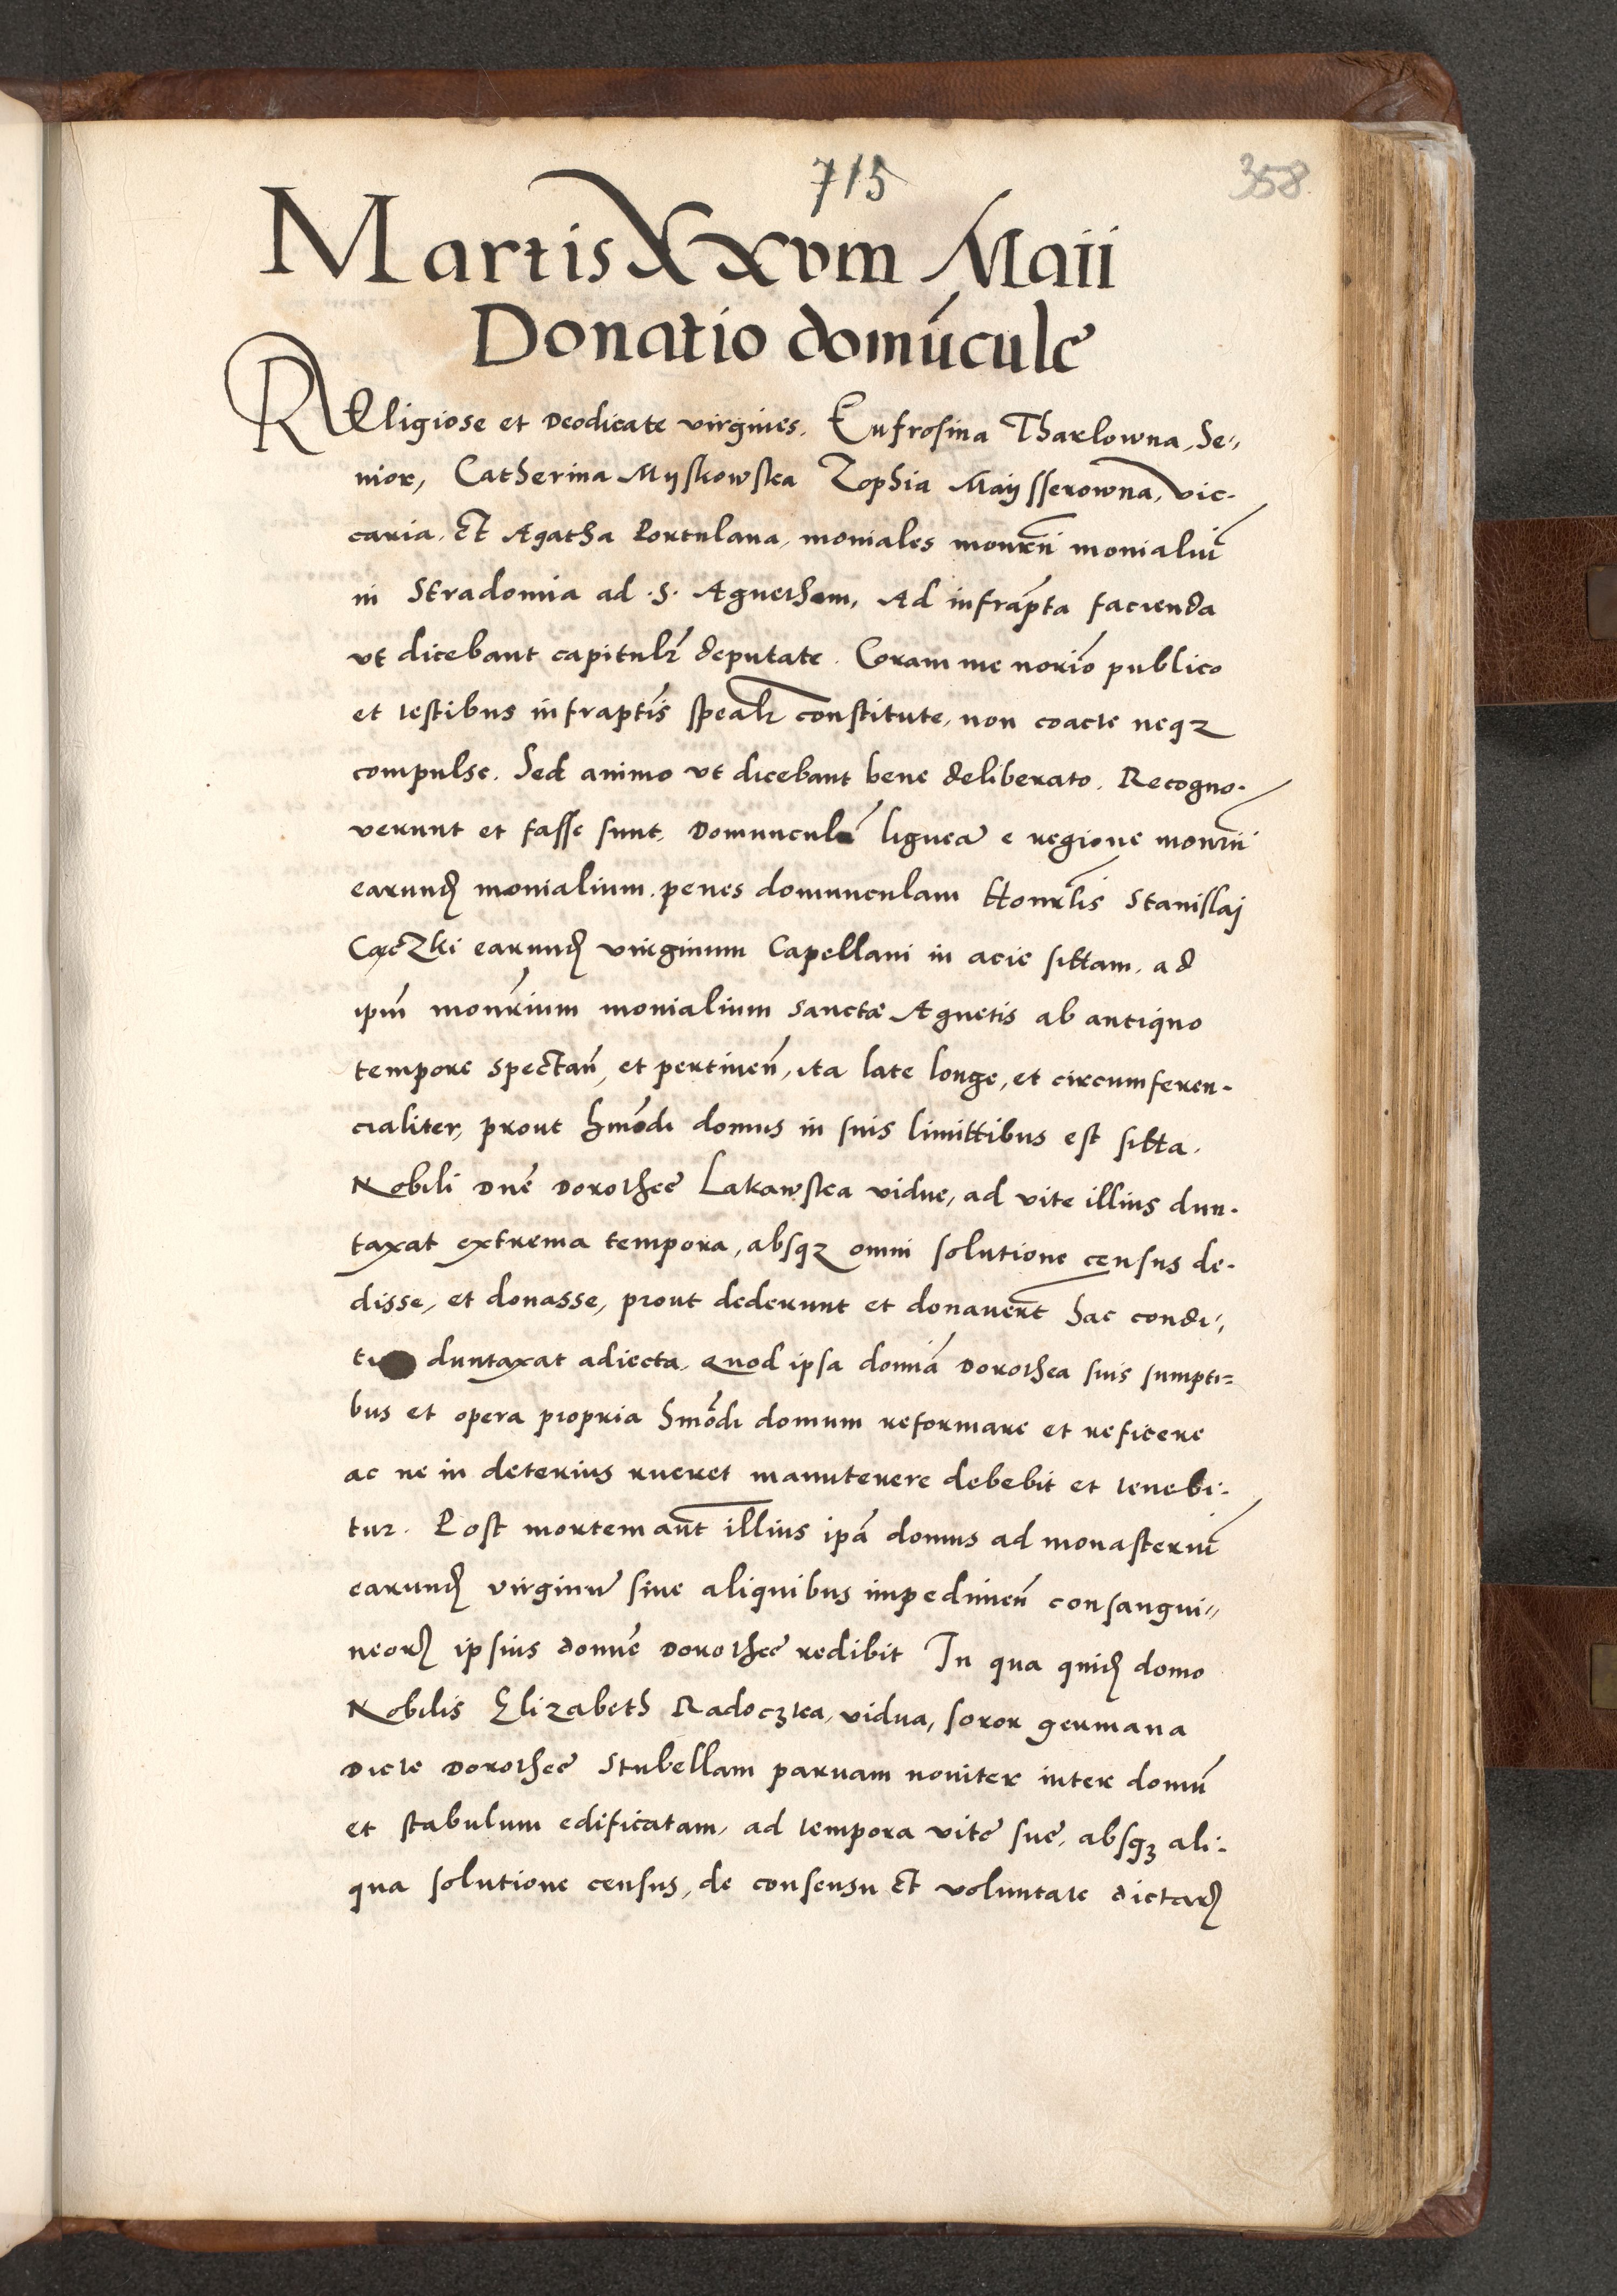 715
358
Martis XXvm Maii
Donatio domúcule
REligiose et Deodicate virgines. Eufrosina Tharlowna, Se„
nior, Catherina Myskowska Zophia Maijsserowna, vic-
caria, Et Agatha Portulana, moniales monrii monialiū
in Stradomia ad .S. Agnetham, Ad infrapta facienda
vt dicebant capitulr deputate. Coram me norio publico
et testibus infraptis spealr constitute, non coacte neqz
compulse. Sed animo vt dicebant bene deliberato. Recogno-
verunt et fasse sunt, Domunculā ligneā e regione monrii
earund monialium penes domunculam Honrlis Stanislaj
earund virginum Capellani in acie sittam, ad
ipm monrium monialium sanctæ Agnetis ab antiquo
tempore spectan, et pertinen, ita late longe, et circumferen-
cialiter, prout hmodi domus in suis limittibus est sitta.
Nobili Dne Dorothee Lakawska vidue, ad vite illius dun-
taxat extrema tempora, absqz omni solutione census de-
disse, et donasse, prout dederunt et donavert hac condi„
duntaxat adiecta, Quod ipsa domia Dorothea suis sumpti=
bus et opera propria hmodi domum reformare et reficere
ac ne in deterius rueret manutenere debebit et tenebi-
tur. Post mortem aut illius ipa domus ad monasteriū
earund virginū sine aliquibus impedimen consangui„
neor ipsius domne Dorothee redibit In qua quid domo
Nobilis Elizabeth Radoczka, vidua, soror germana
Dicte Dorothee Stubellam parvam noviter inter domū
et stabulum edificatam, ad tempora vite sue, absqz ali-
qua solutione census, de consensu et voluntate dictar